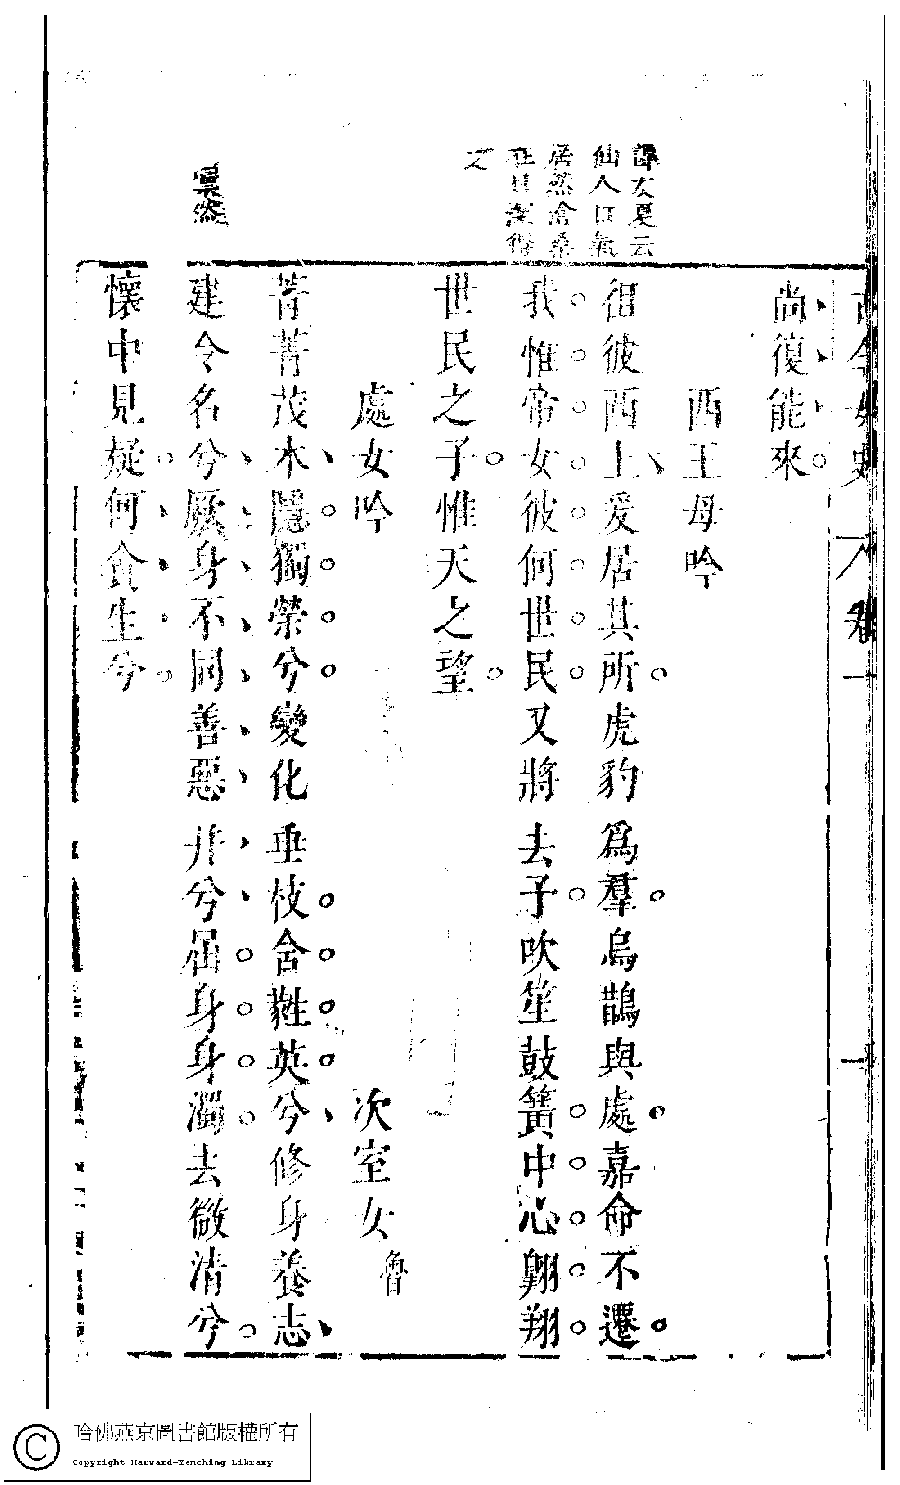 古今女史
卷一
一
譚友夏云
仙人口氣
居然
之
然
尚復能來
西王母吟
徂彼西土爰居其所虎豹爲羣烏鵲與處嘉命不遷
我惟帝女彼何世民又將去子吹笙鼓簧中心翺翔
世民之子惟天之望
處女吟 次室女 魯
菁菁茂木隱獨榮兮變化垂枝含蕤英兮修身養志
建令名兮厥身不同善惡并兮屈身身濁去微清兮
懷中見疑何貪生兮
哈佛燕京圖書館版權所有
Copyright Harvard-Yenching Library